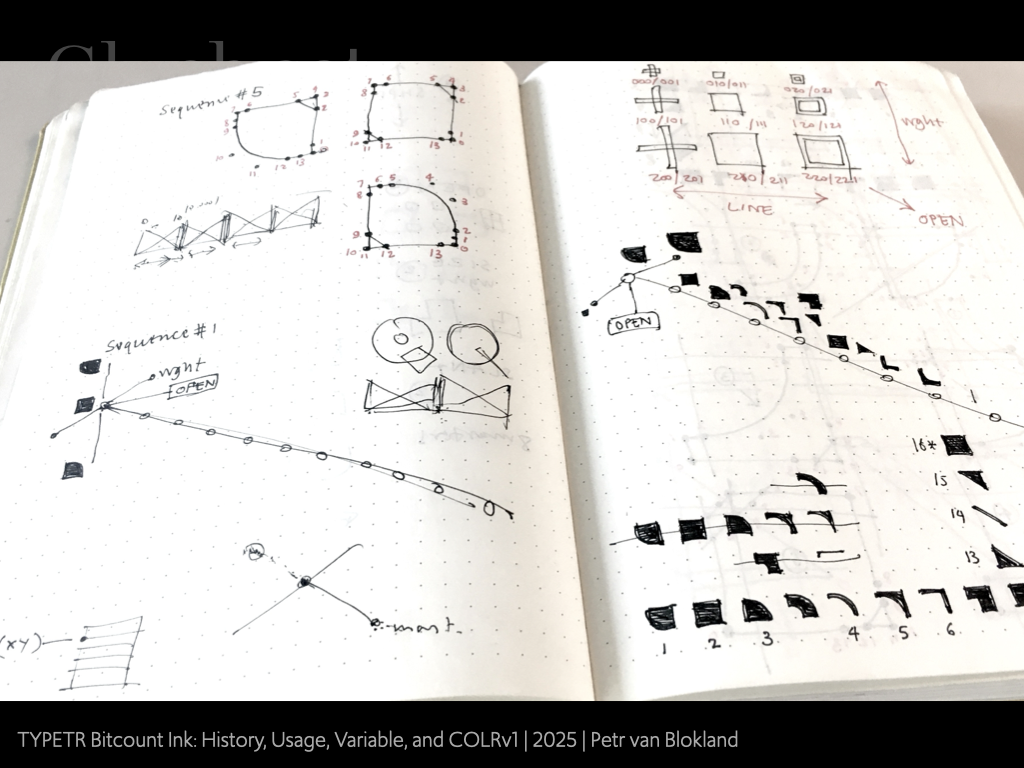 Sequence #5
7 6 5 4 3
8 2
9 1
10 11 12 13
7 6 5 4 3
8 2
9 1
10 11 12 13 0
7 6 5 4
8 3
9 2
1
10 11 12 13 0
Sequence #1
wght
OPEN
(XY)
000/001 010/011 020/021
100/101 110/111 120/121
wght
200/201 210/211 220/221
LINE
OPEN
OPEN
16*
15
14
13
1 2 3 4 5 6
TYPETR Bitcount Ink: History, Usage, Variable, and COLRv1 | 2025 | Petr van Blokland